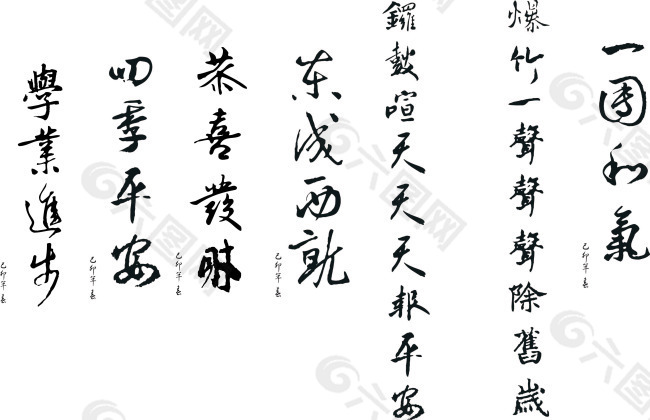 一團和氣
己卯年春
爆竹一聲聲聲除舊歲
鑼鼓喧天天天報平安
東成西就
己卯年春
恭喜發財
己卯年春
四季平安
己卯年春
學業進步
己卯年春
六图网